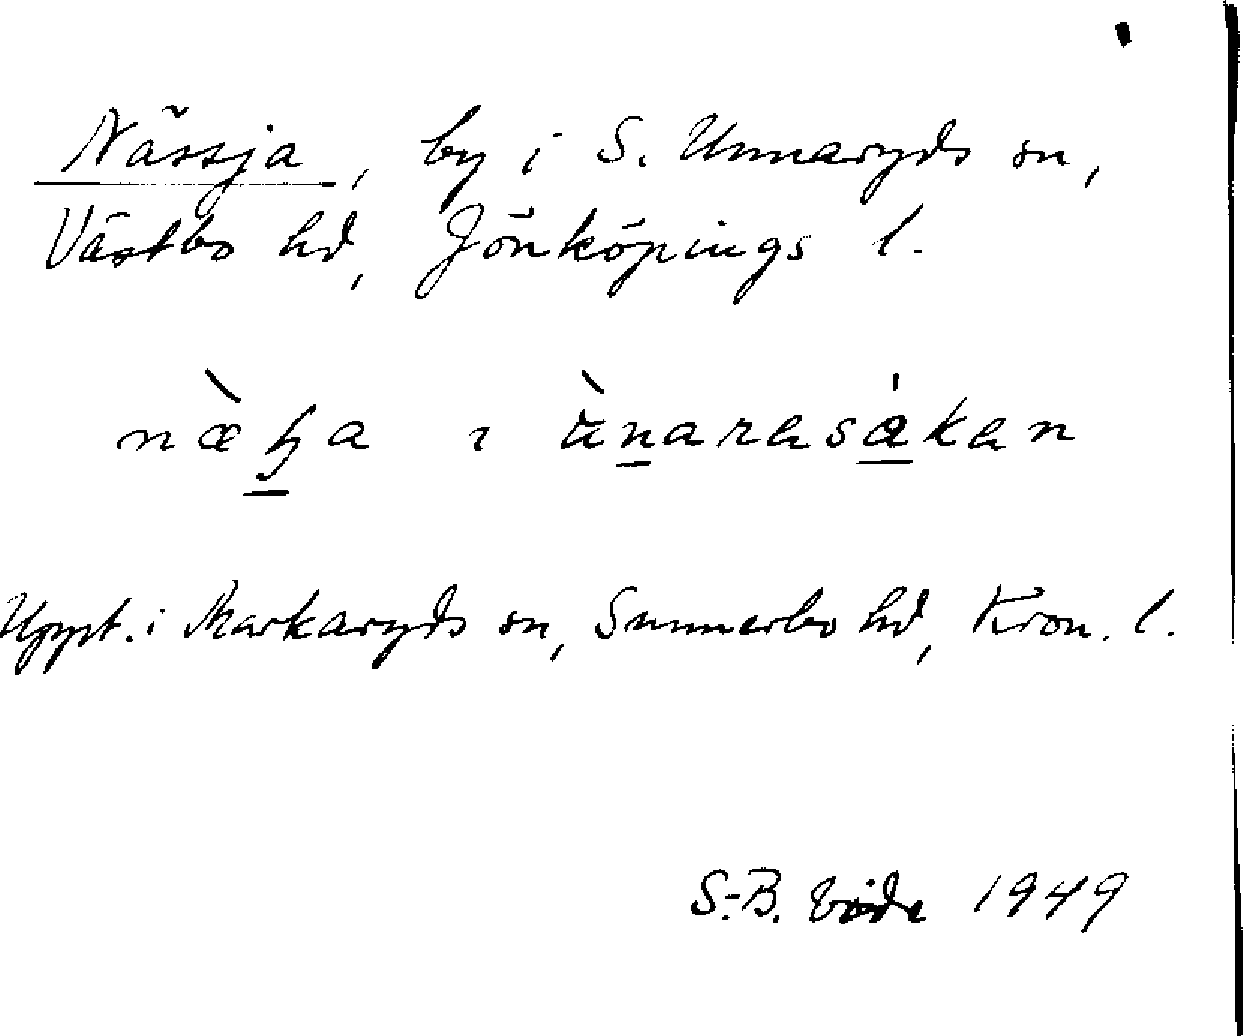 Nässja, by i S. Unnaryds sn,
Västbo hd, Jönköpings l.
næ̀ɧa ɪ ùnarasákan
Uppt. i Markaryds sn, Sunnerbo hd, Kron. l.
S.-B. Vide 1949